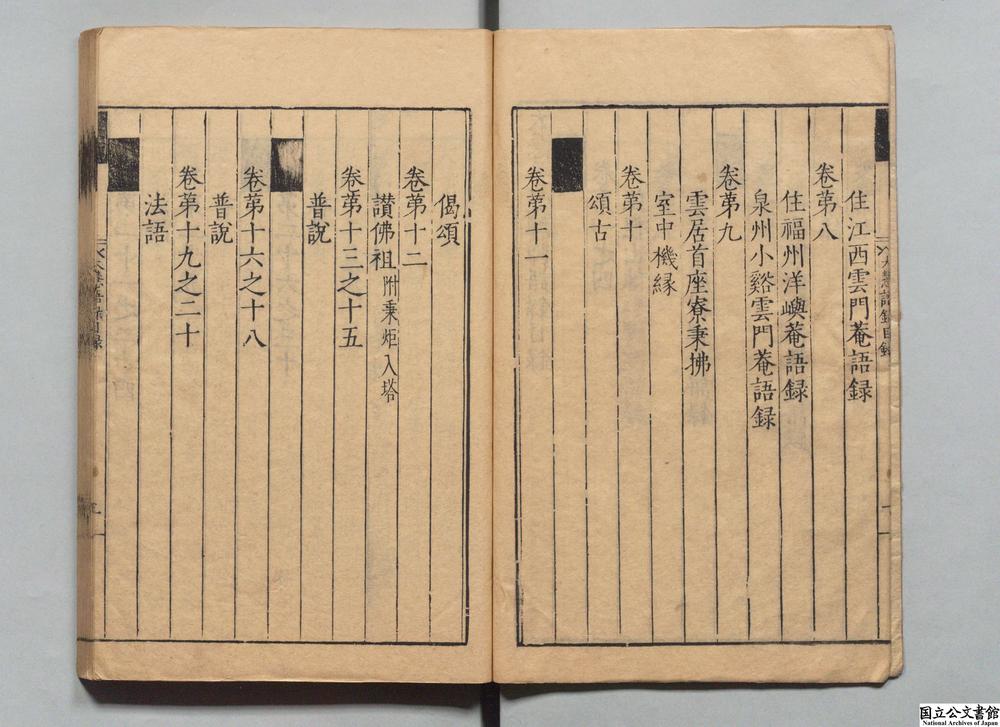 住江西雲門菴語録
卷苐八
住福州洋嶼菴語録
泉州小谿雲門菴語録
卷苐九
雲居首座寮秉拂
室中機縁
卷苐十
頌古
卷苐十一
偈頌
卷苐十二
讃佛祖附秉炬入塔
卷苐十三之十五
普説
卷苐十六之十八
普説
卷苐十九之二十
法語
国立公文書館
National Archives of Japan